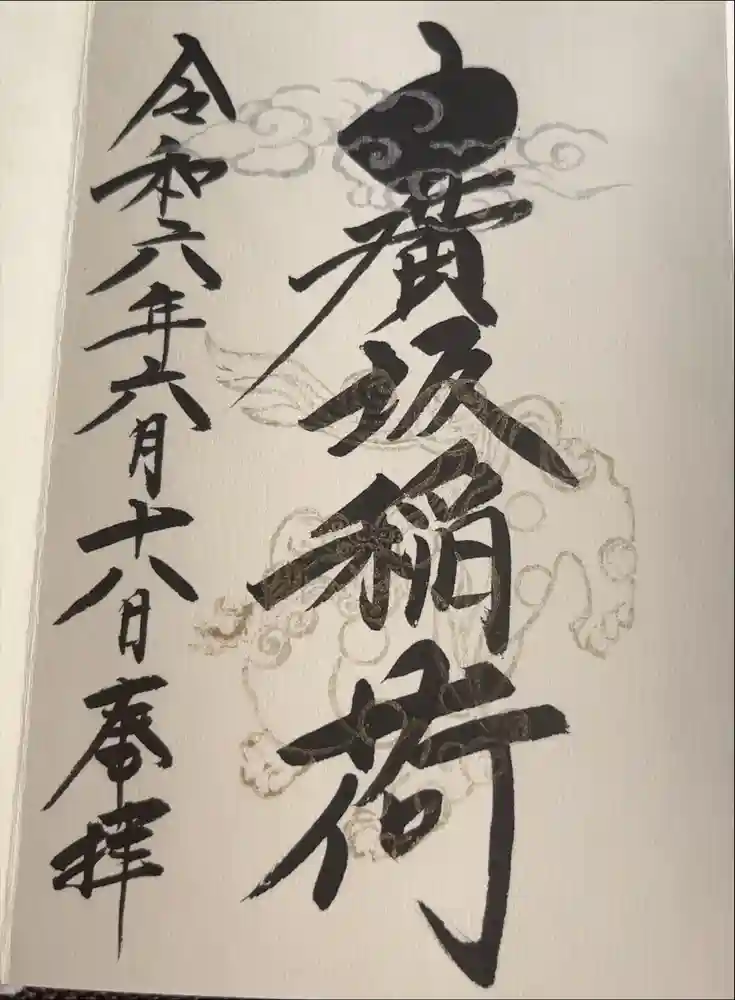 廣坂稲荷
令和六年六月十八日 奉拝